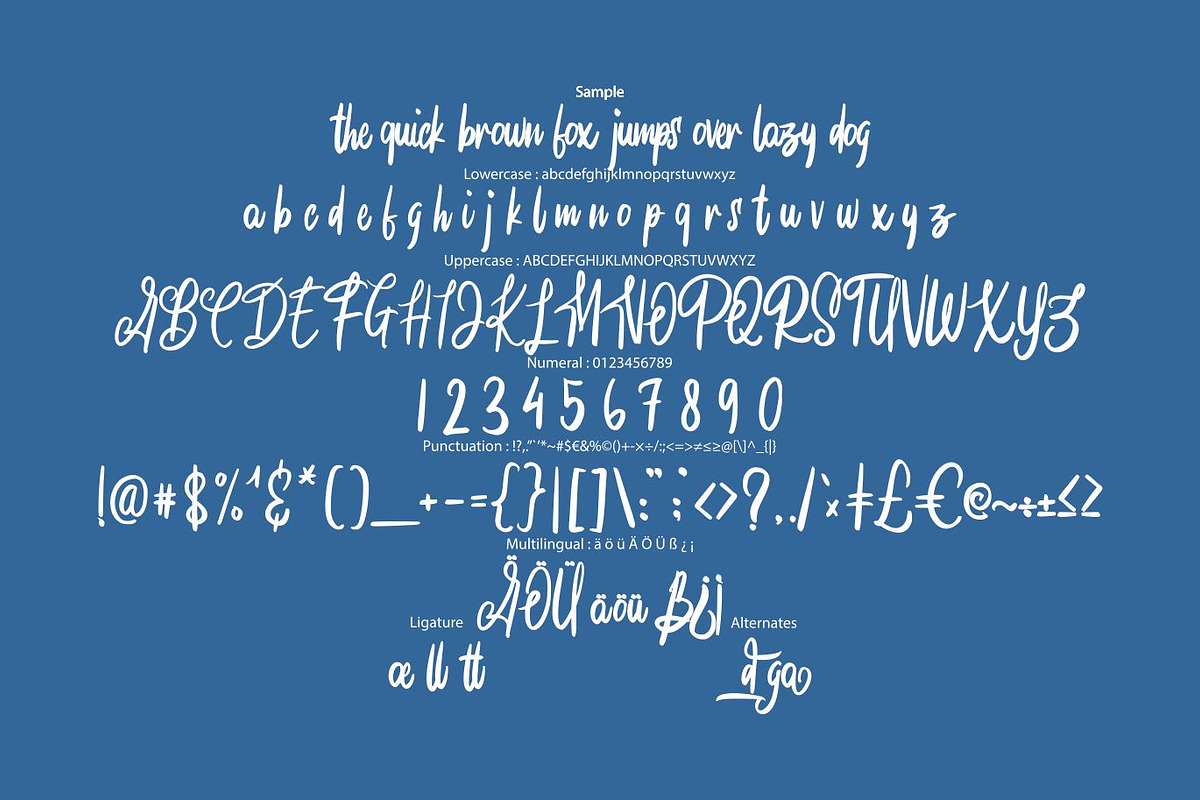 Sample
the quick brown fox jumps over lazy dog
Lowercase : abcdefghijklmnopqrstuvwxyz
a b c d e f g h i j k l m n o p q r s t u v w x y z
Uppercase : ABCDEFGHIJKLMNOPQRSTUVWXYZ
ABCDEFGHIJKLMNOPQRSTUVWXYZ
Numeral : 0123456789
1 2 3 4 5 6 7 8 9 0
Punctuation : !?,."`'*~#$€&%©()+-×÷/:;<=>≠≤≥@[\]^_{|}
!@#$%^&*()_+-={}|[]\:";<>?,./`×ǂ£€©~÷±≤≥
Multilingual : ä ö ü Ä Ö Ü ß ¿ ¡
ÄÖÜ äöü ß¿¡
Ligature
æ ll tt
Alternates
d ga